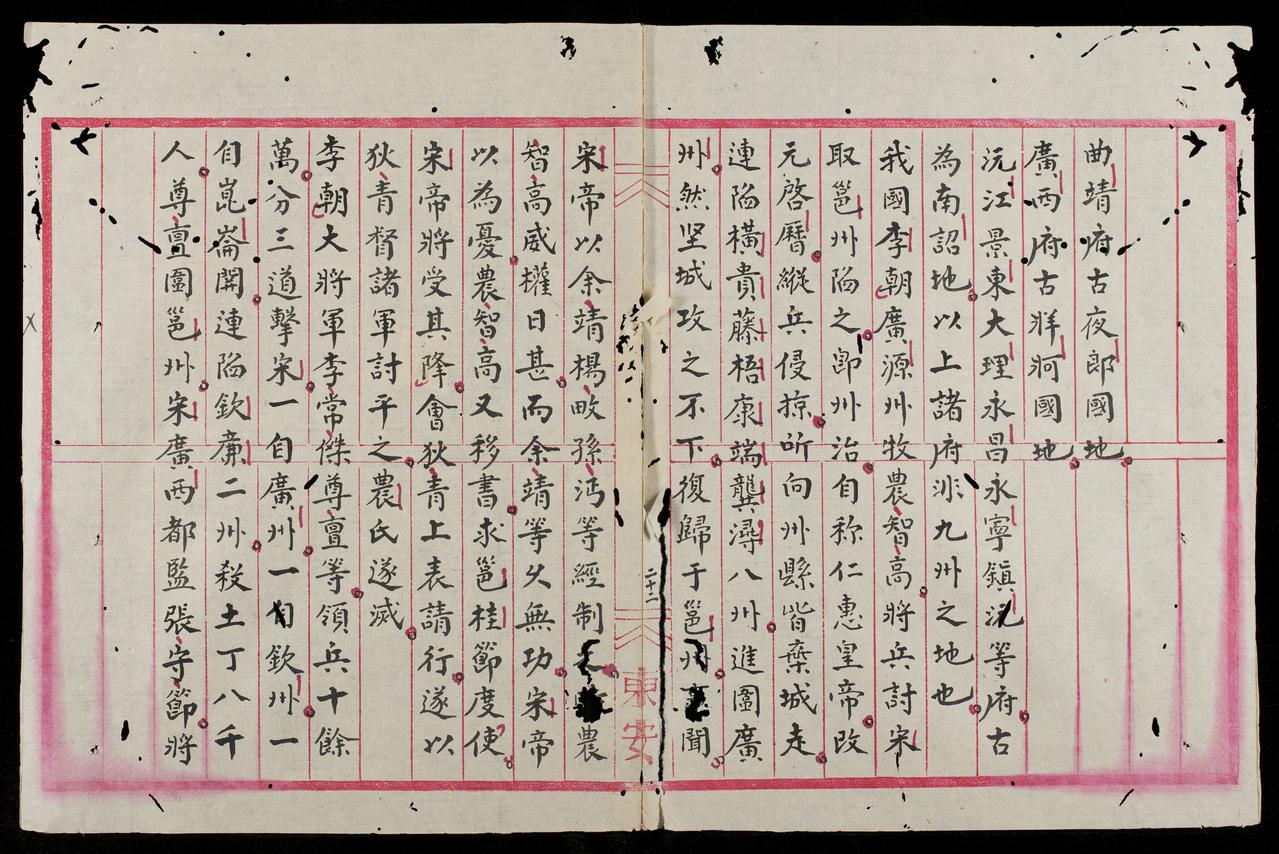 曲靖府古夜郎國地
廣西府古牂牁國地
沅江景東大理永昌永寧鎮沅等府古
為南詔地以上諸府非九州之地也
我國李朝廣源州牧農智高將兵討宋
取邕州陷之即州治自称仁惠皇帝改
元啓曆縱兵侵掠所向州縣皆棄城走
連陷橫貴藤梧康端龔潯八州進圍廣
州然坚城攻之不下復歸于邕州聞
二十二
東安
宋帝以余靖楊畋孫沔等經制農
智高威權日甚而余靖等久無功宋帝
以為憂農智高又移書求邕桂節度使
宋帝將受其降會狄青上表請行遂以
狄青督諸軍討平之農氏遂滅
李朝大將軍李常傑尊亶等領兵十餘
萬分三道擊宋一自廣州一自欽州一
自崑崙関連陷欽廉二州殺土丁八千
人尊亶圍邕州宋廣西都監張守節將